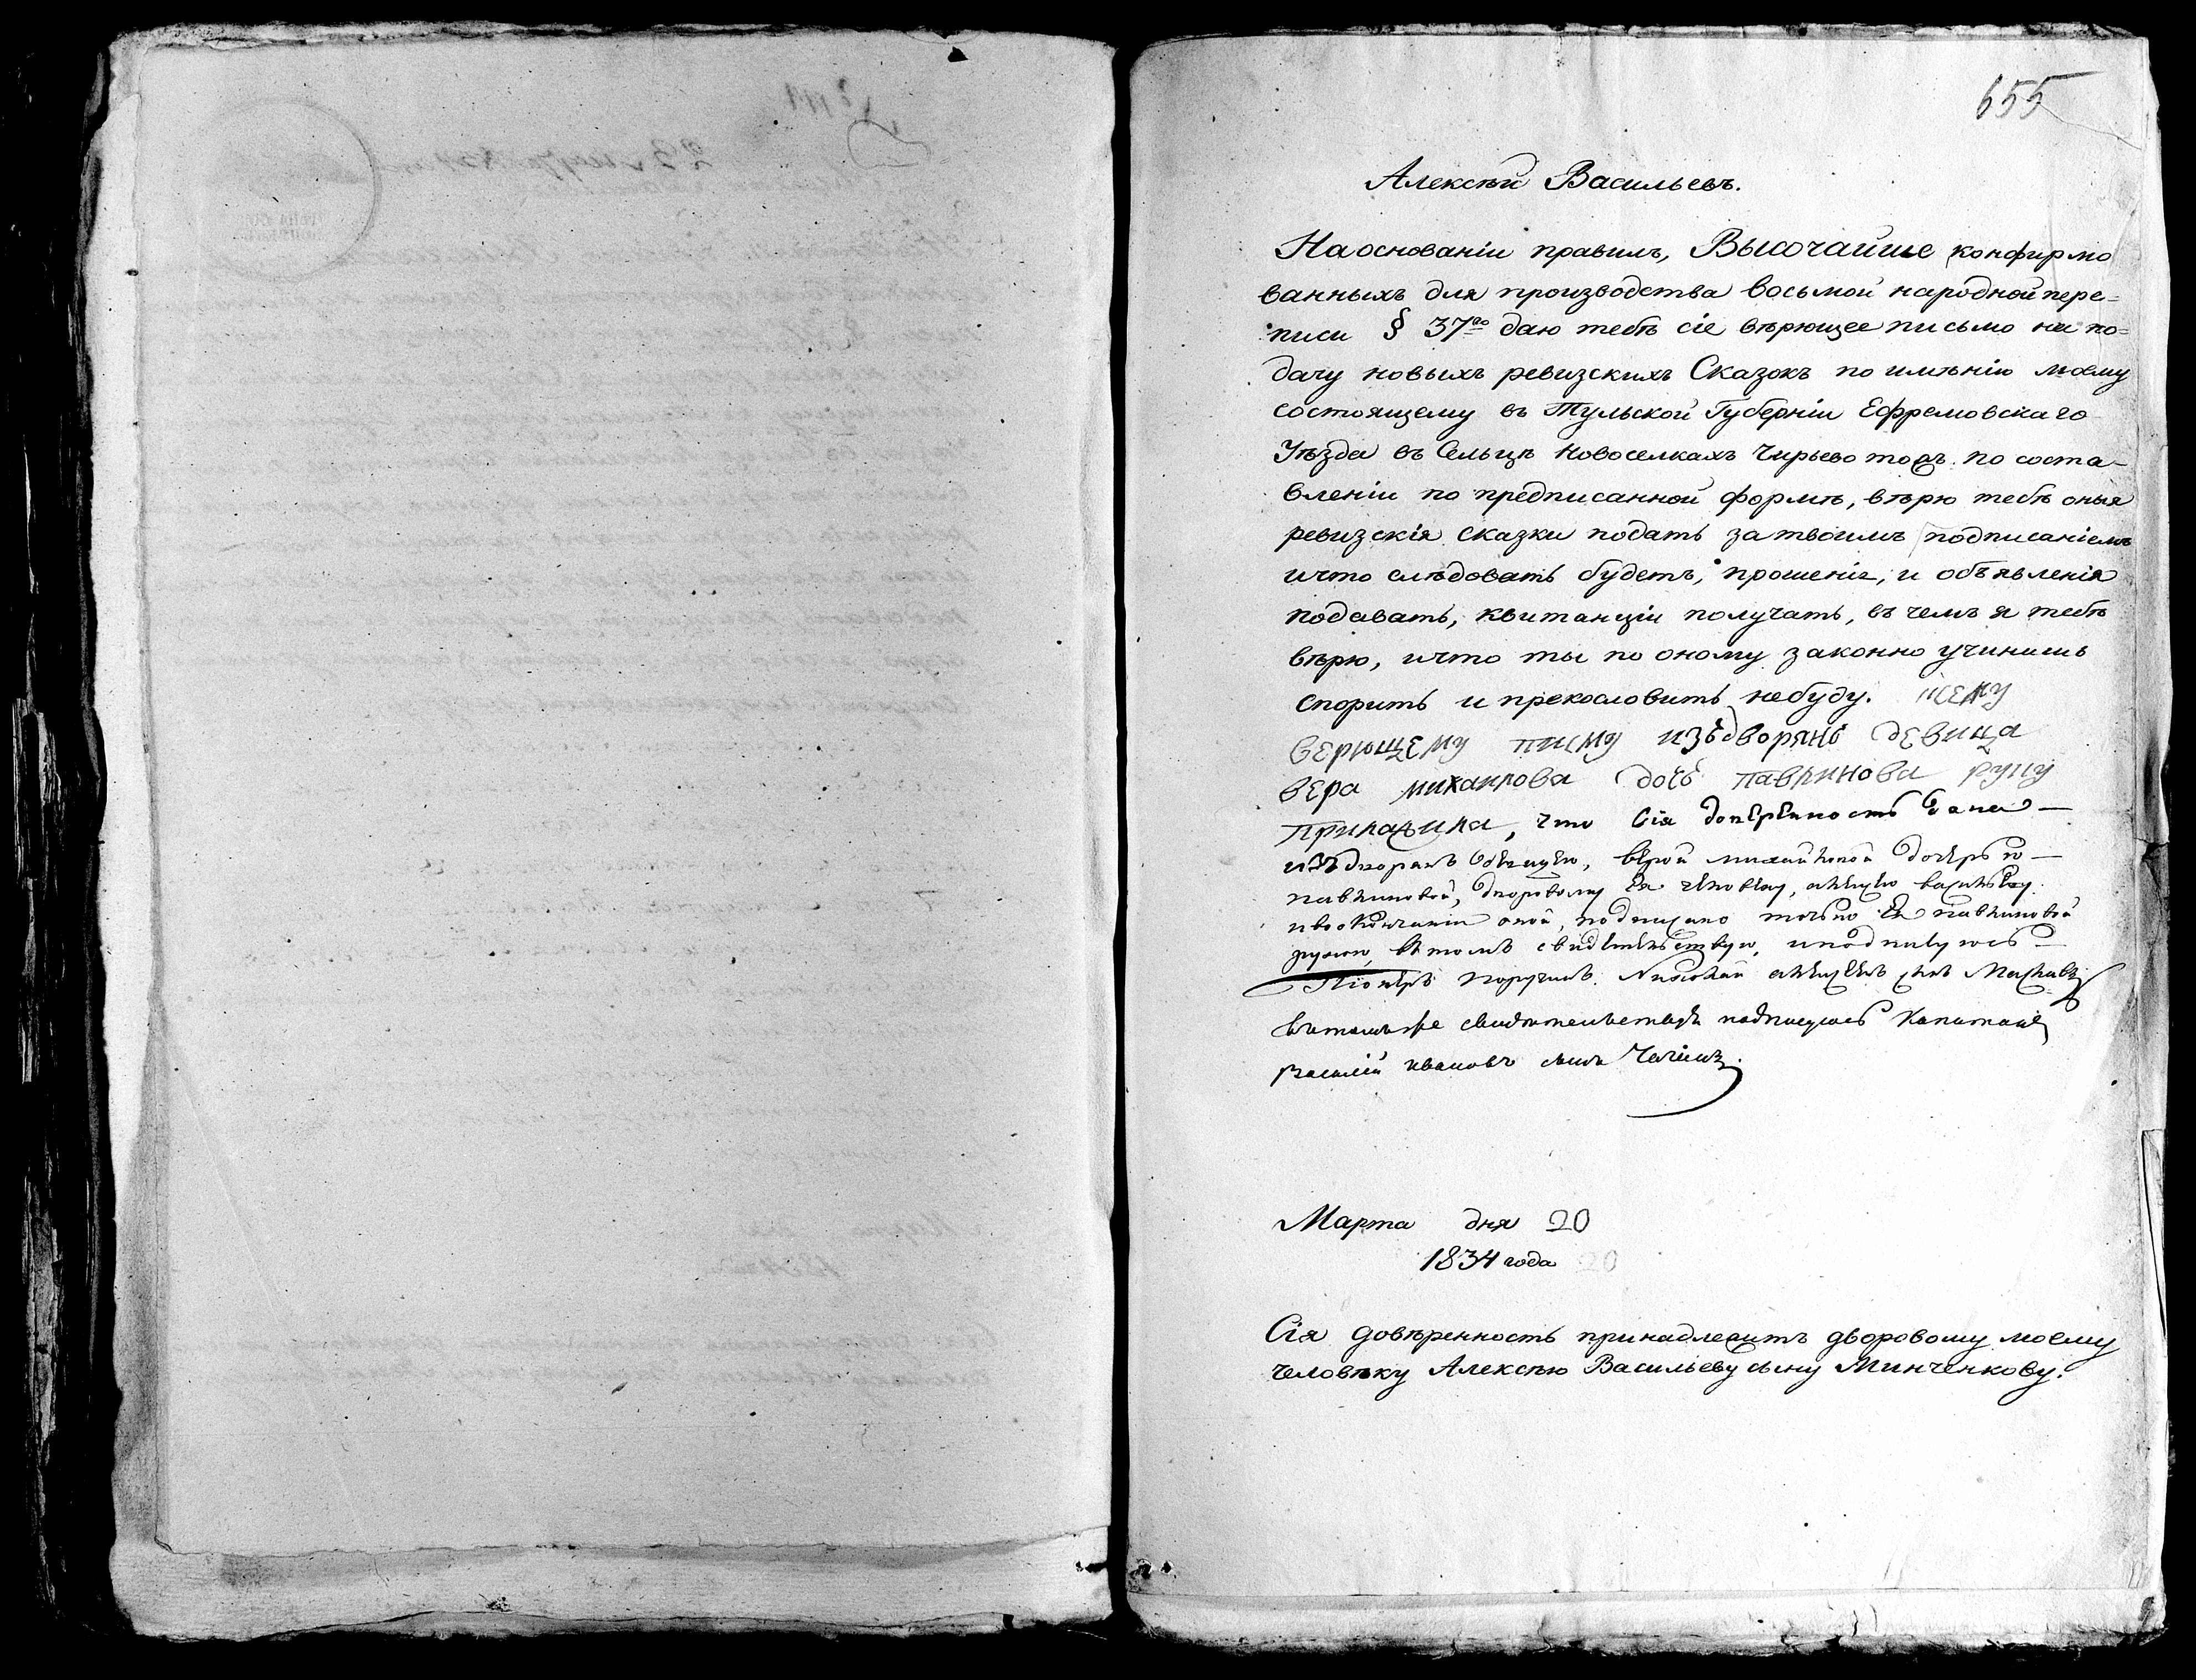 655
Алексѣй Васильевъ.
На основаніи правилъ, Высочайше конфирмо
ванныхъ для производства восьмой народной пере=
писи § 37го даю тебѣ сіе вѣрющее письмо на по=
дачу новыхъ ревизскихъ Сказокъ по имѣнію моему
состоящему въ Тульской Губерніи Ефремовскаго
Уѣзда въ Сельцѣ Новоселкахъ Чирьево тожъ. по соста-
вленіи по предписанной формѣ, вѣрю тебѣ оныя
ревизскія сказки подать за твоимъ подписаніемъ
и что слѣдовать будетъ, прошенія, и объявленія
подавать, квитанціи получать, въ чемъ я тебѣ
вѣрю, и что ты по оному законно учинишь
спорить и прекословить небуду. ксему
верющему писму изъдворянъ девица
вера михаилова дочь павлинова руку
приложила, что Сія довѣренность дана —
изъ дворянъ дѣвицею, вѣрой михайловой дочерью —
павлиновой, дворовому Ея человѣку, алексѣю васильеву
и во окончаніи оной, подписано точно Ея павлиновой
рукою, въ томъ свидѣтельствую, и подписуюсь —
порутчикъ Николай алексѣевъ сынъ
въ томъ же свидѣтельствуя подписуюсь Капитанъ
Василій Ивановъ сынъ
Марта дня 20
1834 года
Сія довѣренность принадлежитъ дворовому моему
человѣку Алексѣю Васильеву сыну Минченкову.